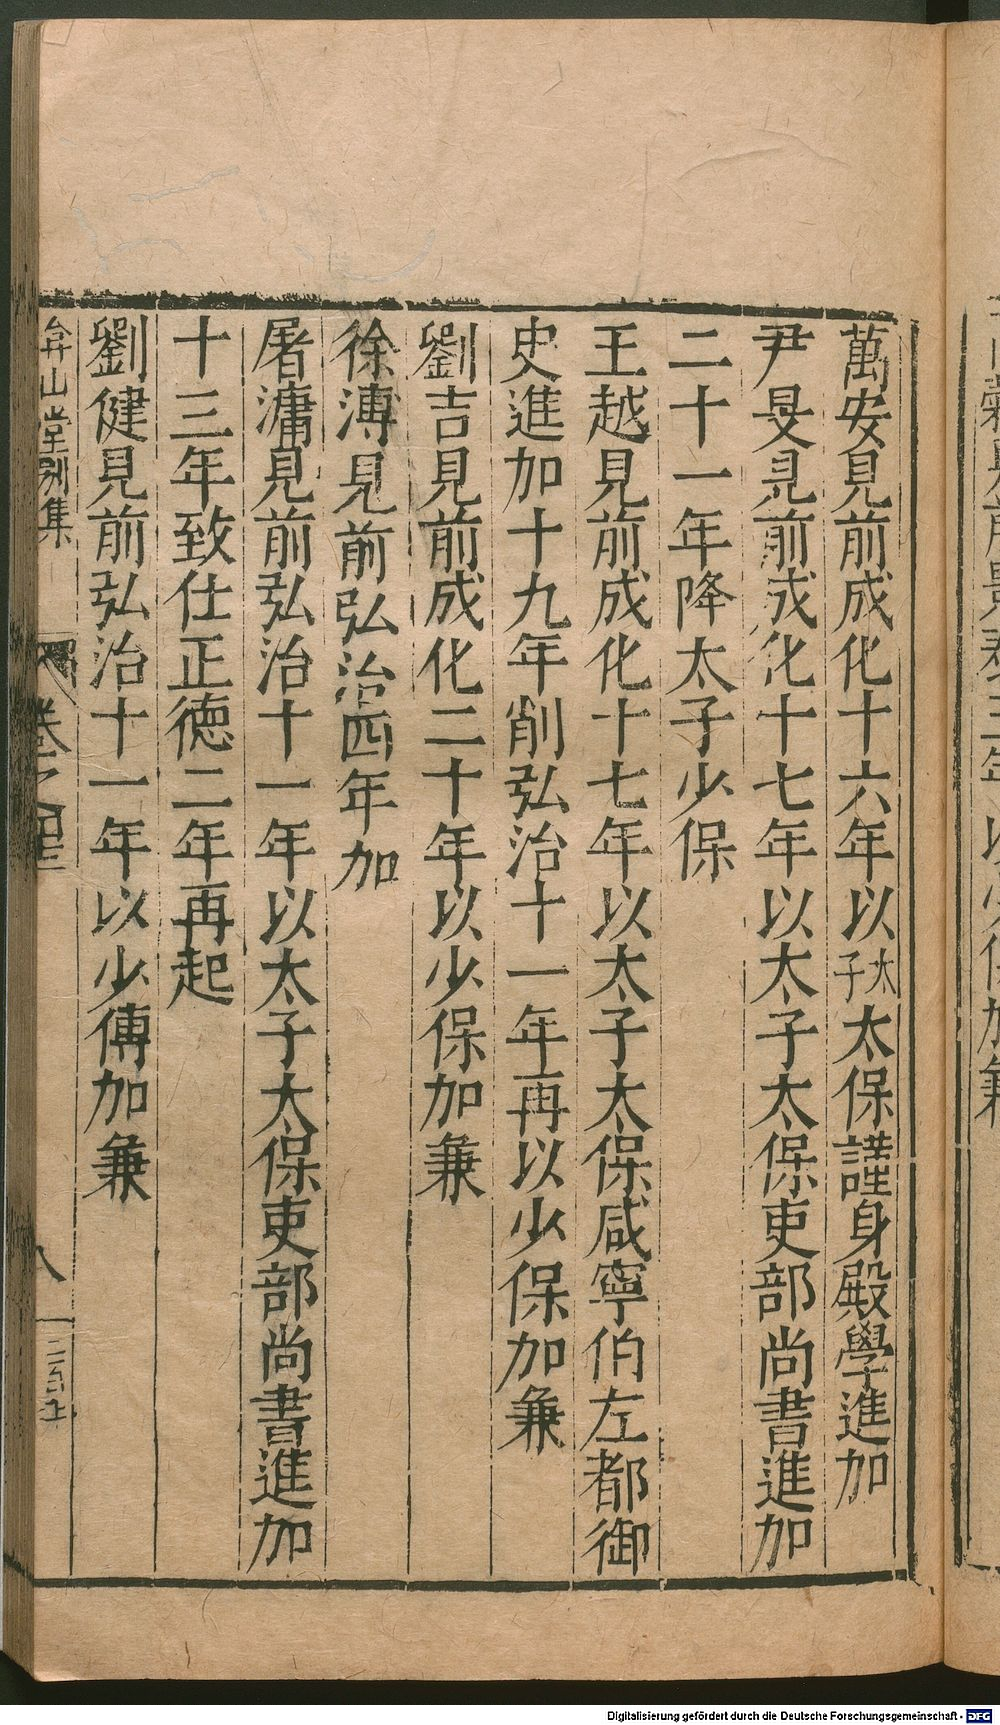 萬安見前成化十六年以太子太保謹身殿學進加
尹旻見前成化十七年以太子太保吏部尚書進加
二十一年降太子少保
王越見前成化十七年以太子太保咸寧伯左都御
史進加十九年削弘治十一年再以少保加兼
劉吉見前成化二十年以少保加兼
徐溥見前弘治四年加
屠滽見前弘治十一年以太子太保吏部尚書進加
十三年致仕正德二年再起
劉健見前弘治十一年以少傅加兼
弇山堂別集
卷之四十三
八
Digitalisierung gefördert durch die Deutsche Forschungsgemeinschaft - DFG